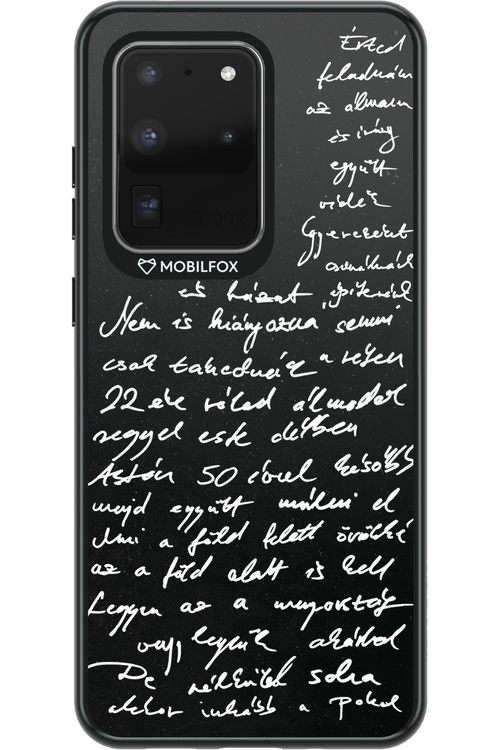 100X
MOBILFOX
Érted
feladnám
az álmam
és irány
együtt
vidék
Gyerekeket
csinálnák
és házat építenék
Nem is hiányozna semmi
csak takednák a részen
22 éve rólad álmodok
reggel este délben
Aztán 50 évvel később
majd együtt múlni el
Ami a föld felett örökké
az a föld alatt is kell
Legyen az a mennyország
vagy legyünk akárhol
De nélküled soha
akkor inkább a pokol